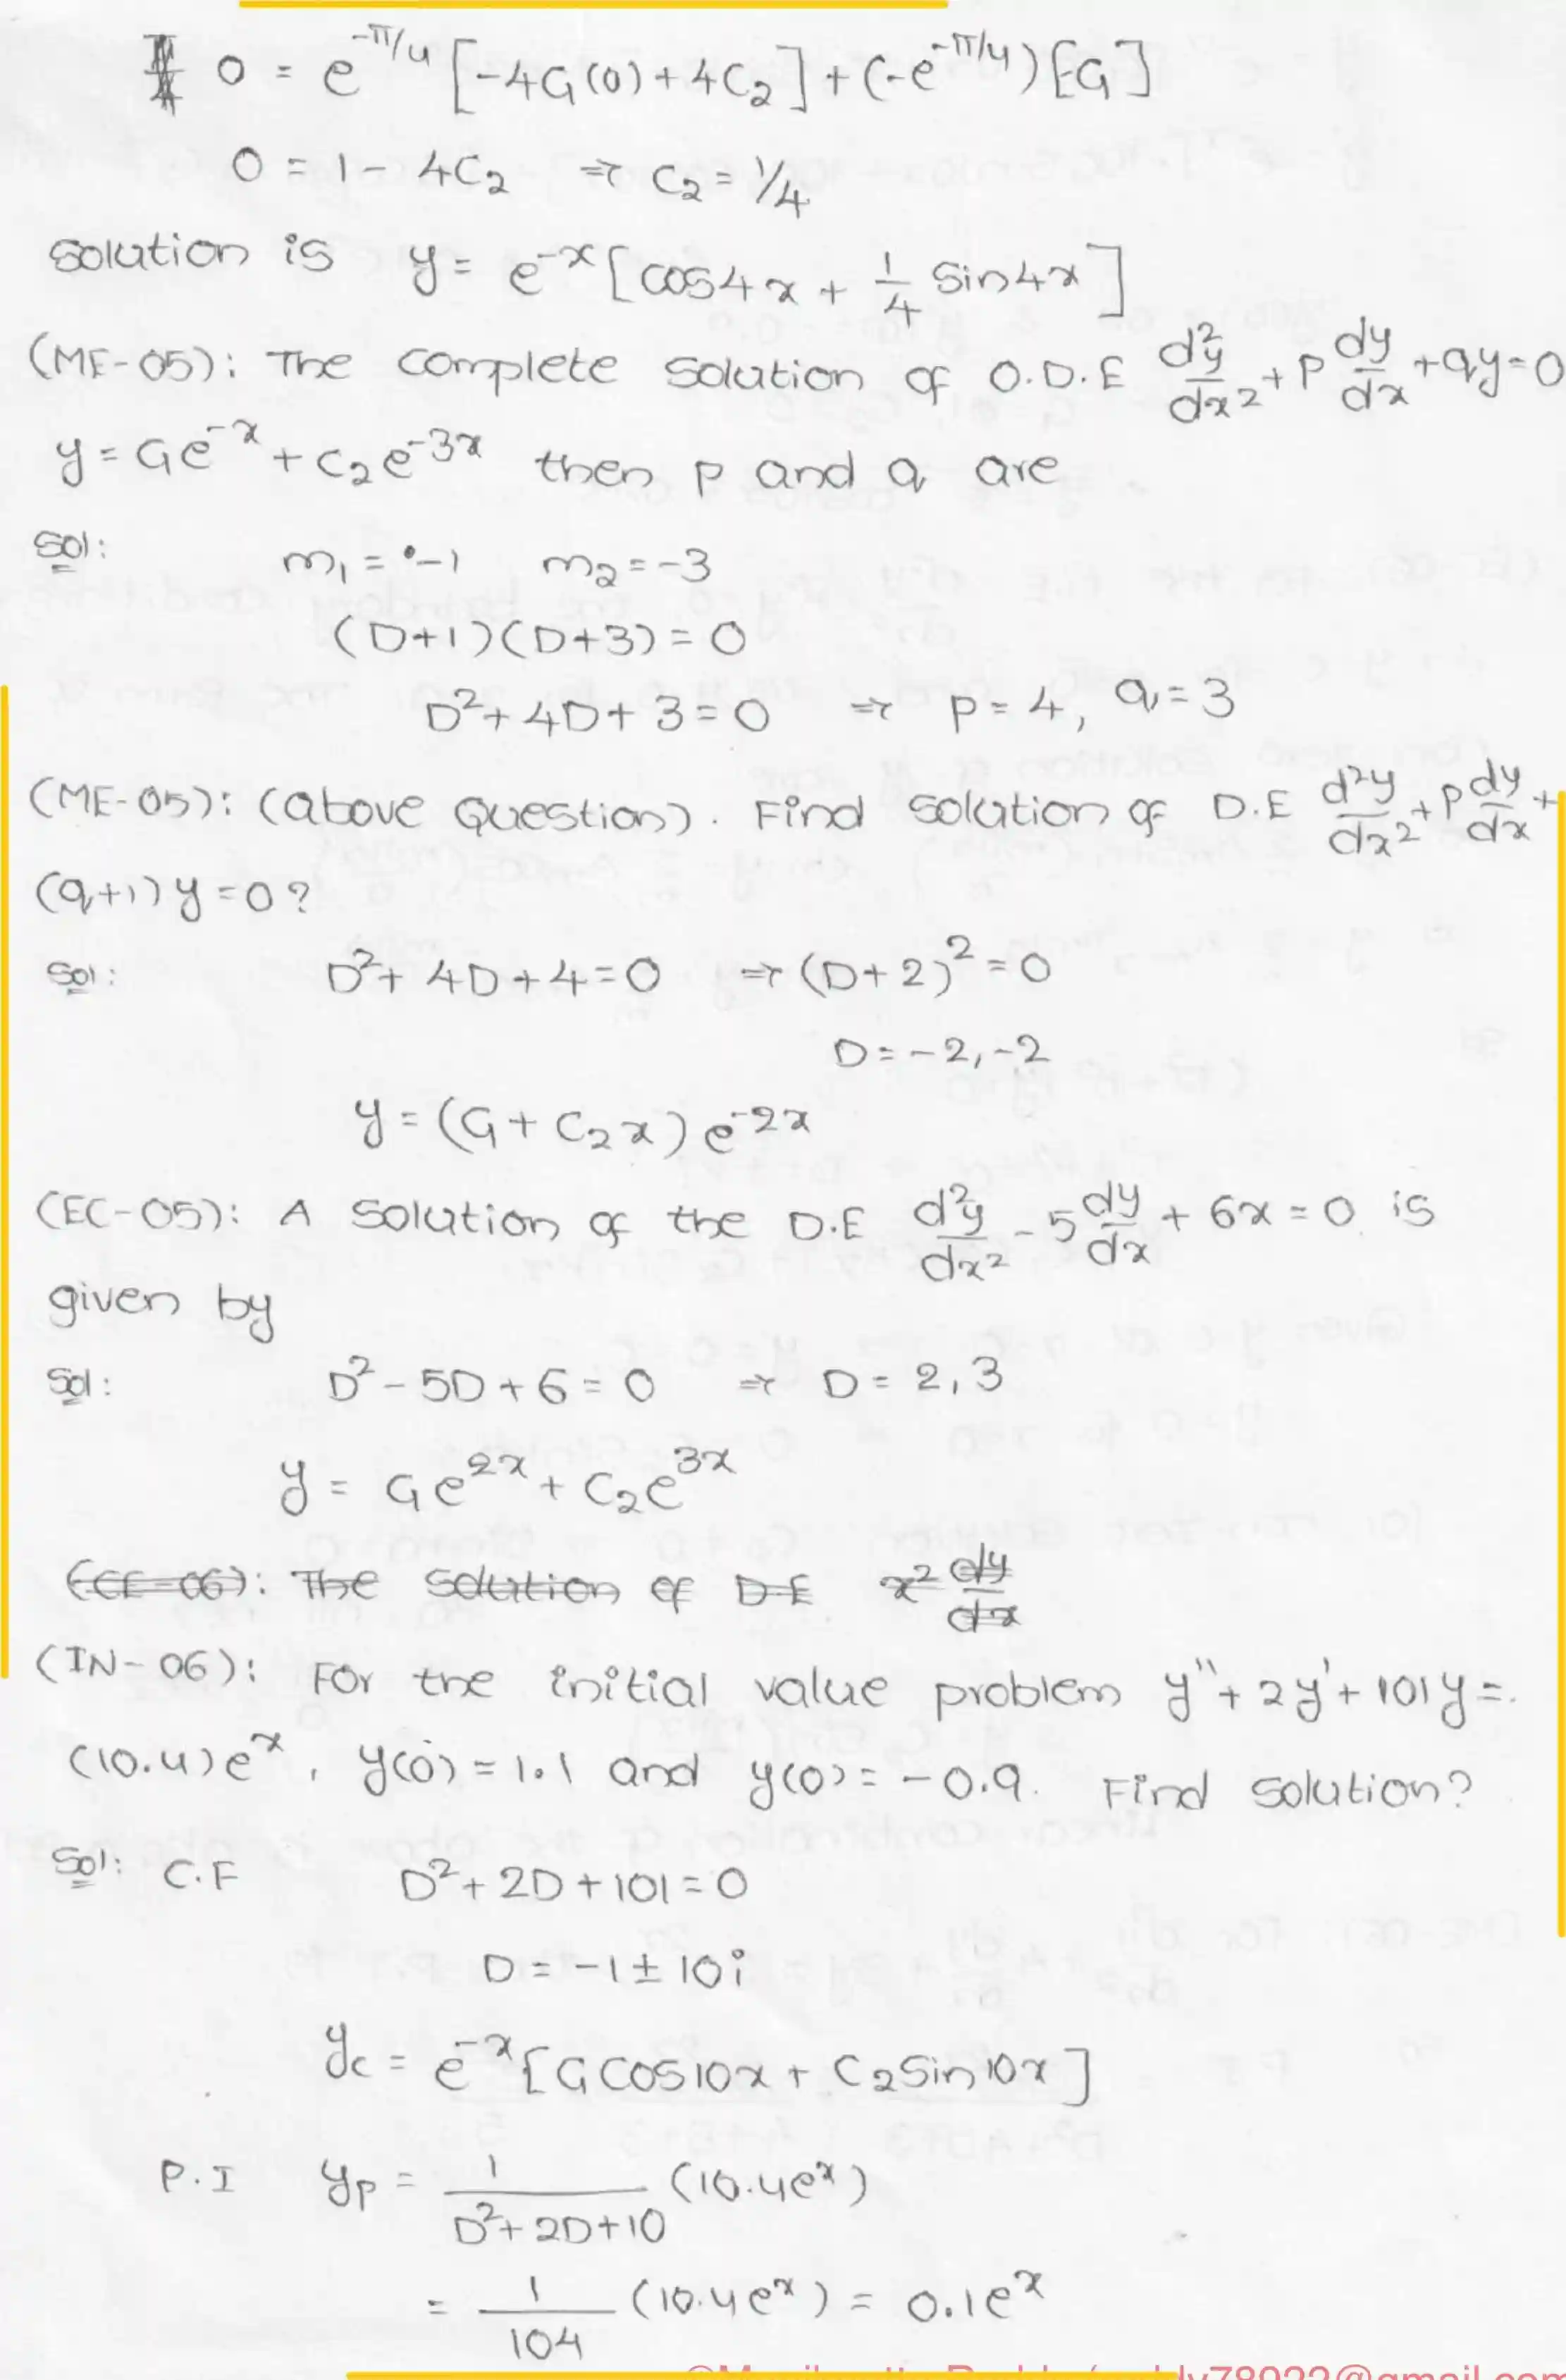 0 = e^{-π/4} [-4C₁(0) + 4C₂] + (-e^{-π/4}) [-C₁]
0 = 1 - 4C₂ ⇒ C₂ = 1/4
solution is y = e^{-x} [cos4x + 1/4 sin4x]
(ME-05): The complete solution of O.D.E d²y/dx² + p dy/dx + qy = 0
y = C₁e^{-x} + C₂e^{-3x} then p and q are
Sol: m₁ = -1 m₂ = -3
(D+1)(D+3) = 0
D² + 4D + 3 = 0 ⇒ p = 4, q = 3
(ME-05): (above Question). Find solution of D.E d²y/dx² + p dy/dx +
(q+1) y = 0 ?
Sol: D² + 4D + 4 = 0 ⇒ (D+2)² = 0
D = -2, -2
y = (C₁ + C₂x) e^{-2x}
(EC-05): A solution of the D.E d²y/dx² - 5 dy/dx + 6x = 0 is
given by
Sol: D² - 5D + 6 = 0 ⇒ D = 2, 3
y = C₁e^{2x} + C₂e^{3x}
: The solution of D.E x² dy/dx
(IN-06): For the initial value problem y'' + 2y' + 101y =
(10.4)e^x, y(0) = 1.1 and y(0) = -0.9. Find solution?
Sol: C.F D² + 2D + 101 = 0
D = -1 ± 10i
y_c = e^{-x} [C₁cos10x + C₂sin10x]
P.I y_p = 1/(D² + 2D + 10) (10.4e^x)
= 1/104 (10.4e^x) = 0.1e^x